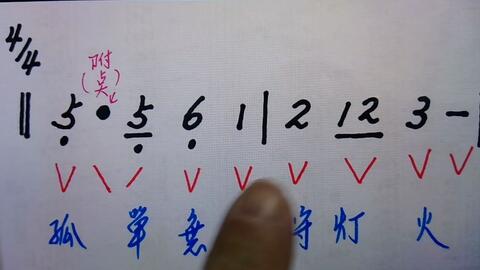 4/4
附
(点)
‖ 5̣ • 5̣ 6̣ 1 | 2 12 3 - |
V \ / V V V V V V
孤 单 惹 守 灯 火